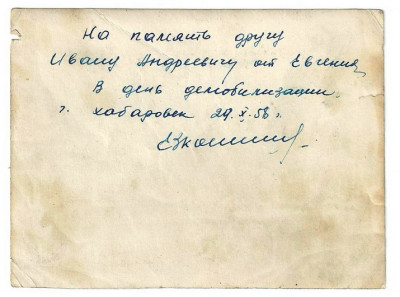 На память другу
Ивану Андреевичу от Евгения
В день демобилизации.
г. Хабаровск 29.X.56 г.